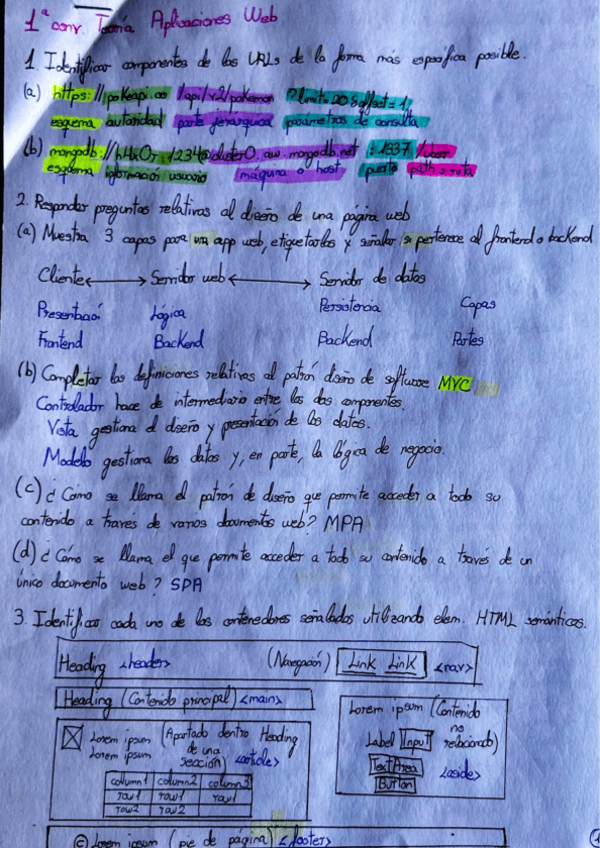 1ª conv. Teoría Aplicaciones Web
1. Identificar componentes de las URLs de la forma más específica posible.
(a) https://pokeapi.co/api/v2/pokemon?limit=20&offset=1
esquema autoridad parte jerárquica parámetros de consulta
(b) mongodb://h4x0r:1234@cluster0.aw.mongodb.net:1337/user
esquema información usuario máquina o host puerto path o ruta
2. Responder preguntas relativas al diseño de una página web
(a) Muestra 3 capas para una app web, etiquetarlas y señalar si pertenece al frontend o backend
Cliente ↔ Servidor web ↔ Servidor de datos
Presentació Lógica Persistencia Capas
Frontend Backend Backend Partes
(b) Completar las definiciones relativas al patrón diseño de software MVC.
Controlador hace de intermediario entre los dos componentes.
Vista gestiona el diseño y presentación de los datos.
Modelo gestiona los datos y, en parte, la lógica de negocio.
(c) ¿Cómo se llama el patrón de diseño que permite acceder a todo su
contenido a través de varios documentos web? MPA
(d) ¿Cómo se llama el que permite acceder a todo su contenido a través de un
único documento web? SPA
3. Identificar cada uno de los contenedores señalados utilizando elem. HTML semánticos.
Heading <header> (Navegación) Link Link <nav>
Heading (Contenido principal) <main>
Lorem ipsum (Apartado dentro Heading
Lorem ipsum de una
sección) <article>
column1 column2 column3
row1 row1 row1
row2 row2
Lorem ipsum (Contenido
no
Label Input relacionado)
TextArea <aside>
Button
© Lorem ipsum (pie de página) <footer>